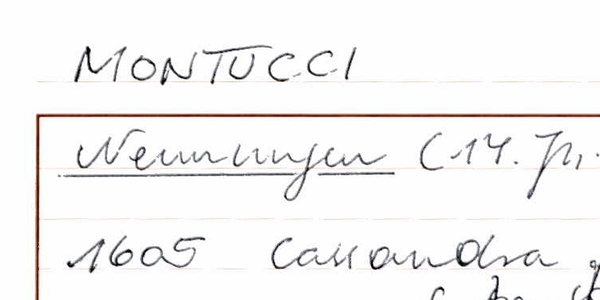 MONTUCCI
Nennungen (14. Jh.
1605 Cassandra